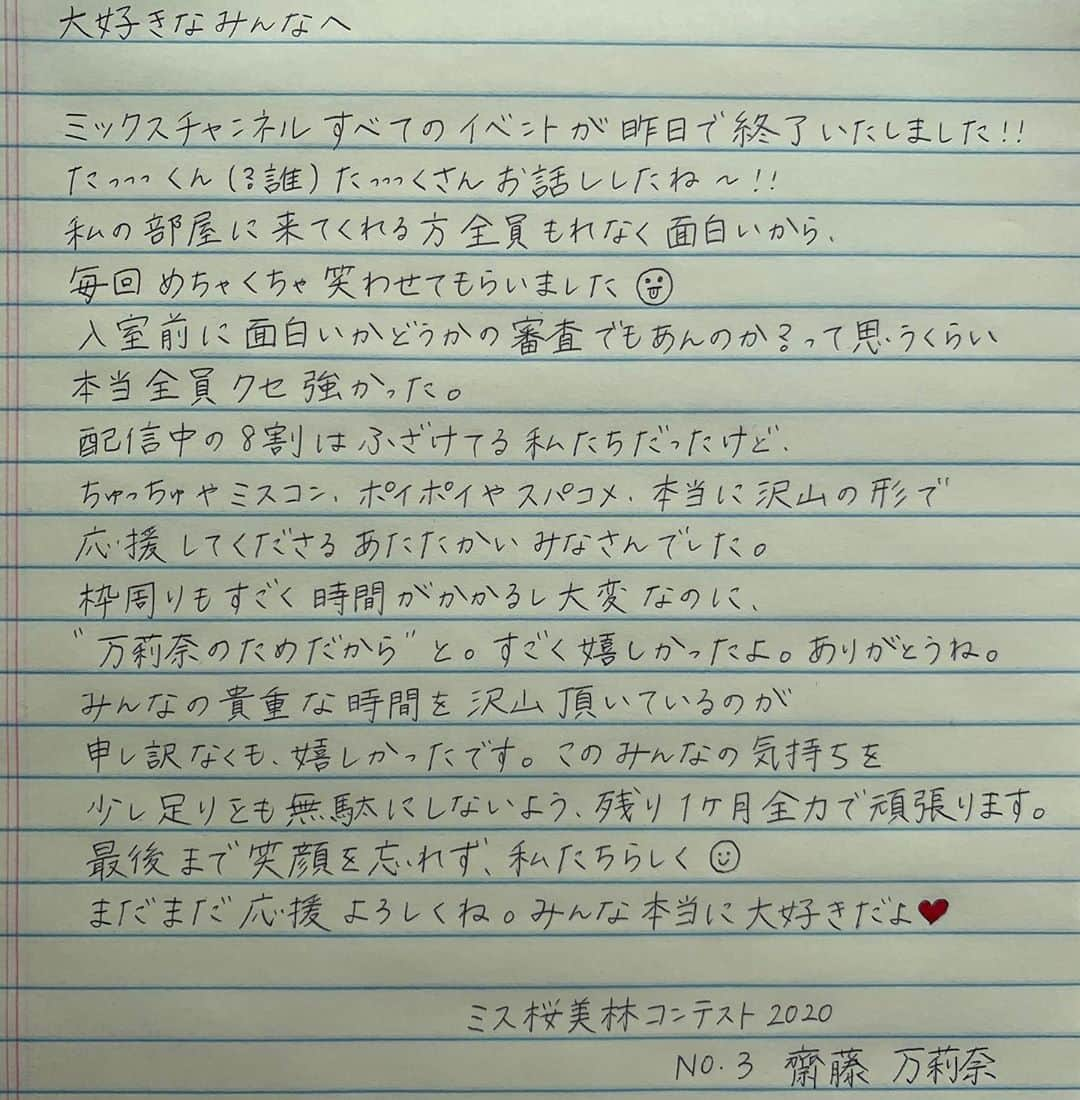 大好きなみんなへ
ミックスチャンネルすべてのイベントが昨日で終了いたしました!!
たっっっくん(?誰)たっっっくさんお話ししたね〜!!
私の部屋に来てくれる方全員もれなく面白いから、
毎回めちゃくちゃ笑わせてもらいました
入室前に面白いかどうかの審査でもあんのか?って思うくらい
本当全員クセ強かった。
配信中の8割はふざけてる私たちだったけど、
ちゅっちゅやミスコン、ポイポイやスパコメ、本当に沢山の形で
応援してくださるあたたかいみなさんでした。
枠周りもすごく時間がかかるし大変なのに、
"万莉奈のためだから"と。すごく嬉しかったよ。ありがとうね。
みんなの貴重な時間を沢山頂いているのが
申し訳なくも、嬉しかったです。このみんなの気持ちを
少し足りとも無駄にしないよう、残り1ヶ月全力で頑張ります。
最後まで笑顔を忘れず、私たちらしく
まだまだ応援よろしくね。みんな本当に大好きだよ♥
ミス桜美林コンテスト2020
NO.3 齋藤 万莉奈